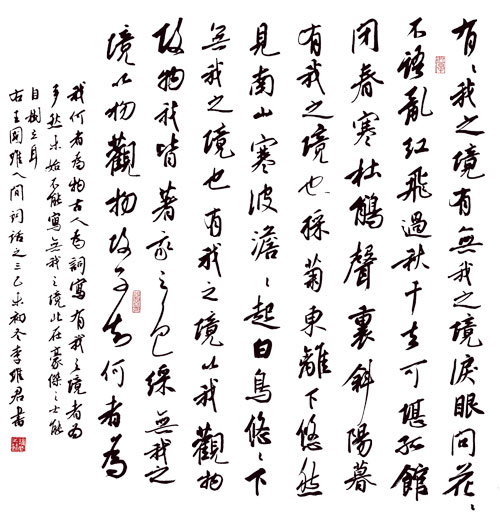 有〻我之境有無我之境淚眼問花〻
不語亂紅飛過秋千去可堪孤館
閉春寒杜鵑聲裏斜陽暮
有我之境也採菊東離下悠然
見南山寒波澹〻起白鳥悠〻下
無我之境也有我之境以我觀物
故物我皆著我之色綵無我之
境以物觀物故不知何者為
我何者為物古人為詞寫有我之境者為
多然未始不能寫無我之境此在豪傑之士能
自樹立耳
右王國維人間詞話之三乙未初冬李維君書